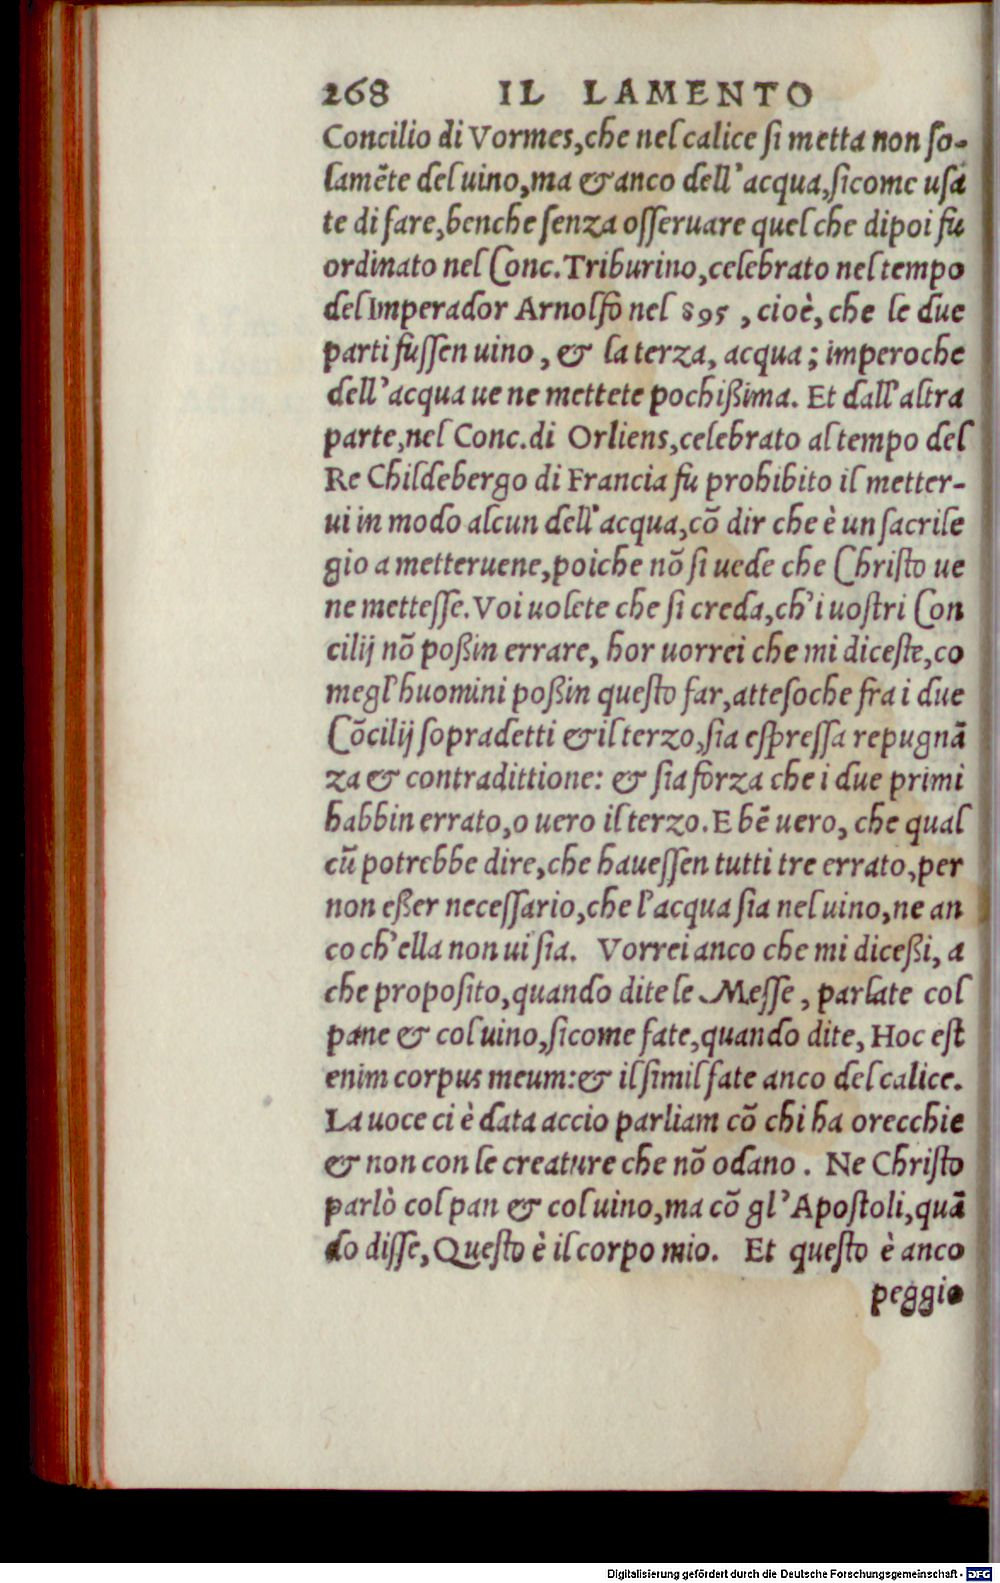 268 IL LAMENTO
Concilio di Vormes,che nel calice ſi metta non ſo-
lamẽte del uino,ma & anco dell'acqua,ſicome uſa
te di fare,benche ſenza oſſeruare quel che dipoi fu
ordinato nel Conc.Triburino,celebrato nel tempo
del Imperador Arnolfo nel 895 , cioè, che le due
parti fuſſen uino , & la terza, acqua ; imperoche
dell'acqua ue ne mettete pochißima. Et dall'altra
parte,nel Conc.di Orliens,celebrato al tempo del
Re Childebergo di Francia fu prohibito il metter-
ui in modo alcun dell'acqua,cõ dir che è un ſacrile
gio a metteruene,poiche nõ ſi uede che Chriſto ue
ne metteſſe.Voi uolete che ſi creda,ch'i uoſtri Con
cilij nõ poßin errare, hor uorrei che mi diceſte,co
me gl'huomini poßin queſto far,atteſoche fra i due
Cõcilij ſopradetti & il terzo,ſia eſpreſſa repugnã
za & contradittione: & ſia forza che i due primi
habbin errato,o uero il terzo.E bẽ uero, che qual
cũ potrebbe dire,che haueſſen tutti tre errato,per
non eßer neceſſario,che l'acqua ſia nel uino,ne an
co ch'ella non ui ſia. Vorrei anco che mi diceßi, a
che propoſito,quando dite le Meſſe , parlate col
pane & col uino,ſicome fate,quando dite, Hoc eſt
enim corpus meum:& il ſimil fate anco del calice.
La uoce ci è data accio parliam cõ chi ha orecchie
& non con le creature che nõ odano . Ne Chriſto
parlò col pan & col uino,ma cõ gl'Apoſtoli,quã
do diſſe, Queſto è il corpo mio. Et queſto è anco
peggio
Digitalisierung gefördert durch die Deutsche Forschungsgemeinschaft - DFG